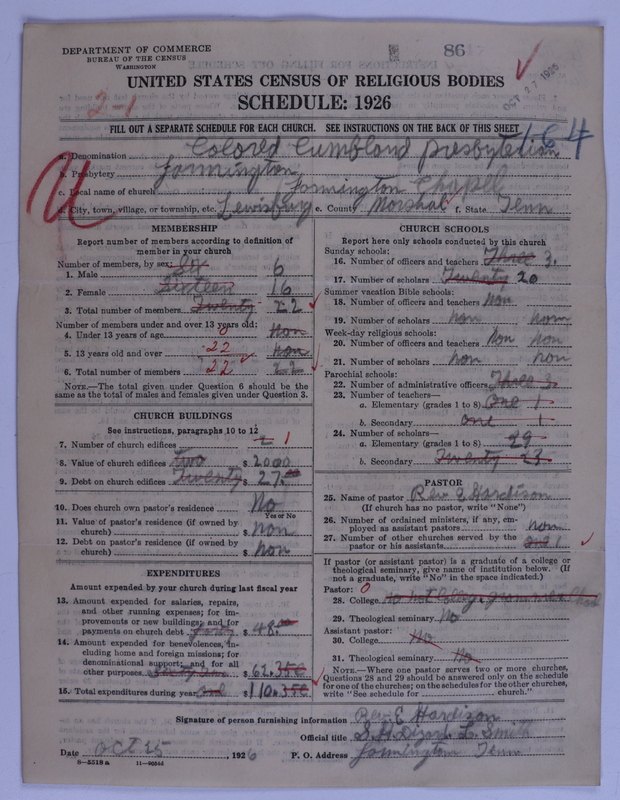 DEPARTMENT OF COMMERCE
BUREAU OF THE CENSUS
WASHINGTON
86
OCT 27 1926
2-1
UNITED STATES CENSUS OF RELIGIOUS BODIES
SCHEDULE: 1926
FILL OUT A SEPARATE SCHEDULE FOR EACH CHURCH. SEE INSTRUCTIONS ON THE BACK OF THIS SHEET
164
a. Denomination Colored Cumbland presbytelion
b. Presbytery Farmington
c. Local name of church Farmington Chapel
d. City, town, village, or township, etc. Lewisburg e. County Marshal f. State Tenn
MEMBERSHIP
Report number of members according to definition of
member in your church
Number of members, by sex:
1. Male Six 6
2. Female Sixteen 16
3. Total number of members Twenty 22
Number of members under and over 13 years old:
4. Under 13 years of age 0 non
5. 13 years old and over 22 non
6. Total number of members 22 22
NOTE.—The total given under Question 6 should be the
same as the total of males and females given under Question 3.
CHURCH BUILDINGS
See instructions, paragraphs 10 to 12
7. Number of church edifices 1
8. Value of church edifices Two $ 2000
9. Debt on church edifices Twenty $ 27.00
10. Does church own pastor's residence No
Yes or No
11. Value of pastor's residence (if owned by
church) $ non
12. Debt on pastor's residence (if owned by
church) $ non
EXPENDITURES
Amount expended by your church during last fiscal year
13. Amount expended for salaries, repairs,
and other running expenses; for im-
provements or new buildings; and for
payments on church debt forty $ 48.00
14. Amount expended for benevolences, in-
cluding home and foreign missions; for
denominational support; and for all
other purposes $ 62.35¢
15. Total expenditures during year $ 110.35¢
CHURCH SCHOOLS
Report here only schools conducted by this church
Sunday schools:
16. Number of officers and teachers Three 3.
17. Number of scholars Twenty 20
Summer vacation Bible schools:
18. Number of officers and teachers non
19. Number of scholars non non
Week-day religious schools:
20. Number of officers and teachers non non
21. Number of scholars non non
Parochial schools:
22. Number of administrative officers Three 3
23. Number of teachers—
a. Elementary (grades 1 to 8) One 1
b. Secondary one 1
24. Number of scholars—
a. Elementary (grades 1 to 8) 29
b. Secondary Twenty 23
PASTOR
25. Name of pastor Rev E Hardison
(If church has no pastor, write "None")
26. Number of ordained ministers, if any, em-
ployed as assistant pastors non
27. Number of other churches served by the
pastor or his assistants one 1
If pastor (or assistant pastor) is a graduate of a college or
theological seminary, give name of institution below. (If
not a graduate, write "No" in the space indicated.)
Pastor: 0
28. College no not College
29. Theological seminary No
Assistant pastor:
30. College No
31. Theological seminary No
NOTE.—Where one pastor serves two or more churches,
Questions 28 and 29 should be answered only on the schedule
for one of the churches; on the schedules for the other churches,
write "See schedule for church."
Signature of person furnishing information Rev. E Hardison
Official title L. Smith
Date OCT 25, 1926 P. O. Address Farmington Tenn
8—5518a 11—9024d